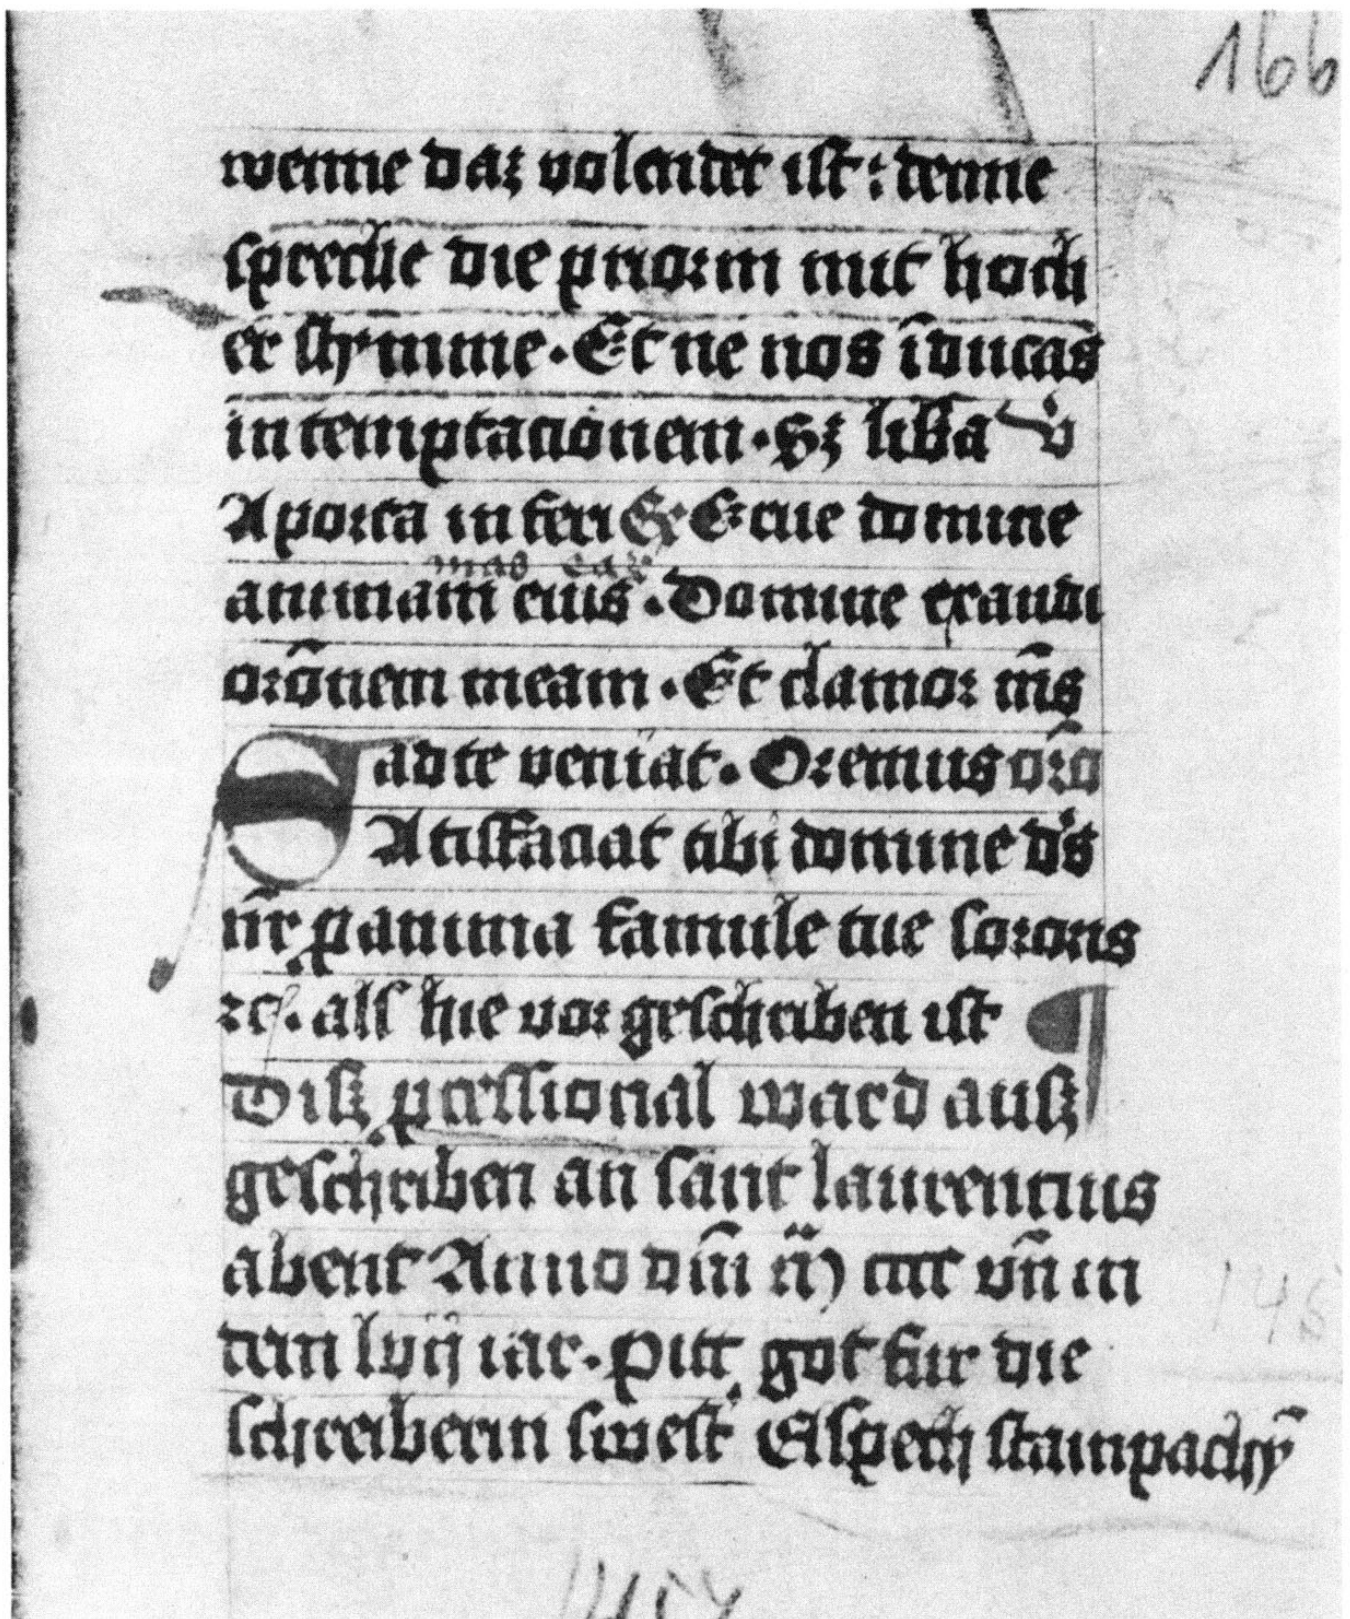 166
wenne daz volendet ist : denne
spreche die priorin mit hoch
er stymme. Et ne nos īducas
in temptacionem. Sz lib̄a v̾
A porta inferi Et Erue domine
mas eaꝝ
animam eius. Domine exaudi
orōnem meam. Et clamor m̄s
ad te veniat. Oremus orō
SAtisfaciat tibi domine d̾s
nr̄ ꝓ anima famule tue sororis
ꝛc̄. als hie vor geschriben ist
Disz ꝓcessional ward ausz
geschriben an sant laurencius
abent Anno dm̄i m̊ cccc vn̄ in
dem lvij iar. Pitt got fur die
schreiberin swest̾ Elspeth stainpachȳ
1457